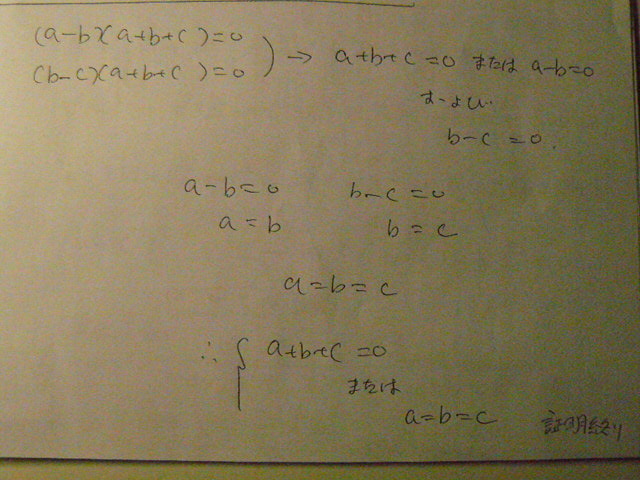 (a-b)(a+b+c)=0
(b-c)(a+b+c)=0 ) → a+b+c=0 または a-b=0
b-c=0.
a-b=0 b-c=0
a=b b=c
a=b=c
∴ { a+b+c=0
または
a=b=c 証明終り